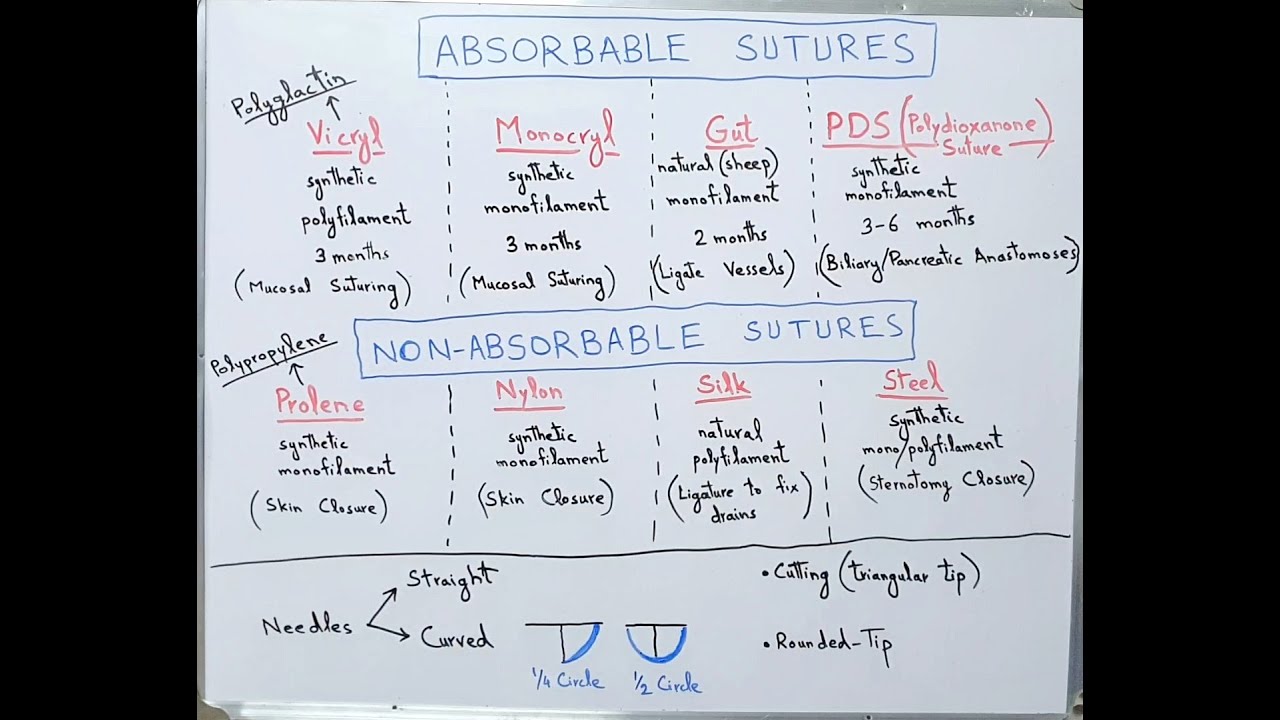 ABSORBABLE SUTURES
Polyglactin
Vicryl
synthetic
polyfilament
3 months
(Mucosal Suturing)
Monocryl
synthetic
monofilament
3 months
(Mucosal Suturing)
Gut
natural (sheep)
monofilament
2 months
(Ligate Vessels)
PDS (Polydioxanone
Suture)
synthetic
monofilament
3-6 months
(Biliary/Pancreatic Anastomoses)
NON-ABSORBABLE SUTURES
Polypropylene
Prolene
synthetic
monofilament
(Skin Closure)
Nylon
synthetic
monofilament
(Skin Closure)
Silk
natural
polyfilament
(Ligature to fix
drains)
Steel
synthetic
mono/polyfilament
(Sternotomy Closure)
Needles
Straight
Curved
1/4 Circle
1/2 Circle
• Cutting (triangular tip)
• Rounded-Tip